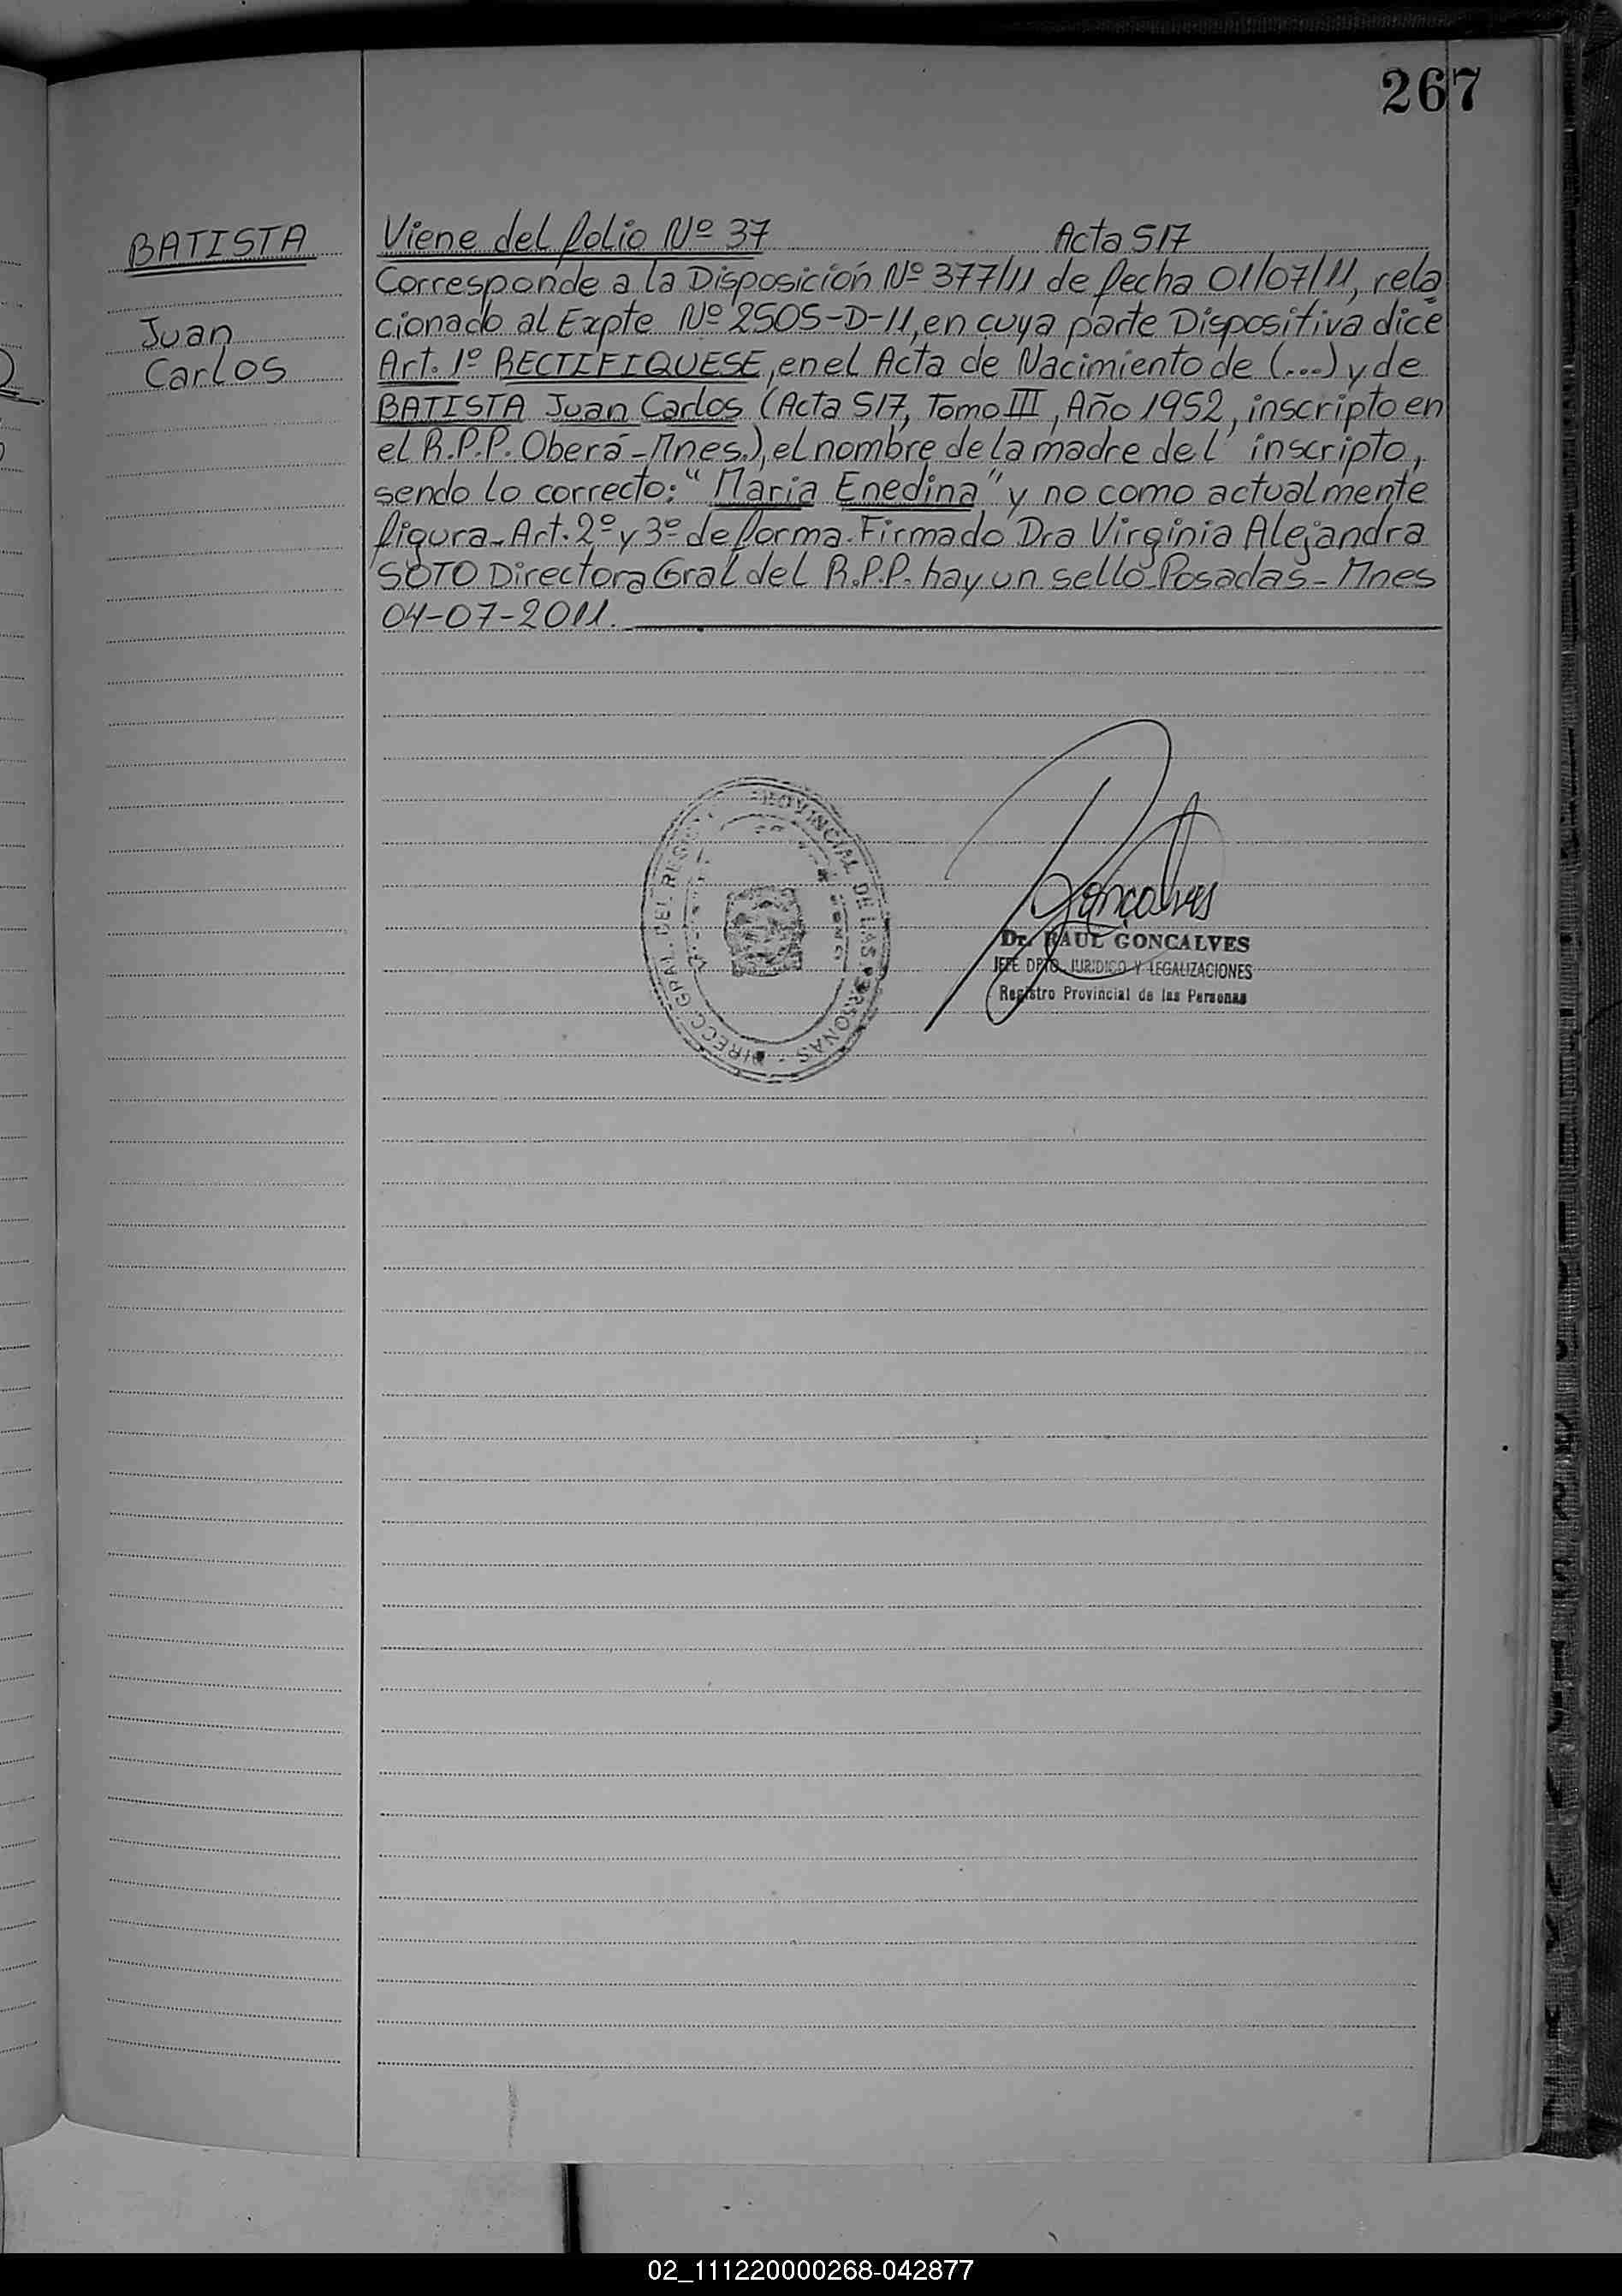 267
BATISTA
Juan
Carlos
Viene del folio Nº 37 Acta 517
Corresponde a la Disposición Nº 377/11 de fecha 01/07/11, rela
cionado al Expte Nº 2505-D-11, en cuya parte Dispositiva dice
Art. 1º RECTIFIQUESE, en el Acta de Nacimiento de (...) y de
BATISTA Juan Carlos (Acta 517, Tomo III, Año 1952, inscripto en
el R.P.P. Oberá-Mnes.), el nombre de la madre del inscripto,
sendo lo correcto: "Maria Enedina" y no como actualmente
figura-Art. 2º y 3º de forma. Firmado Dra Virginia Alejandra
SOTO Directora Gral del R.P.P. hay un sello Posadas-Mnes
04-07-2011.
PROVINCIAL DE LAS PERSONAS - DIRECC. GRAL. DEL
Goncalves
Dr. RAUL GONCALVES
JEFE DPTO. JURIDICO Y LEGALIZACIONES
Registro Provincial de las Personas
02_111220000268-042877